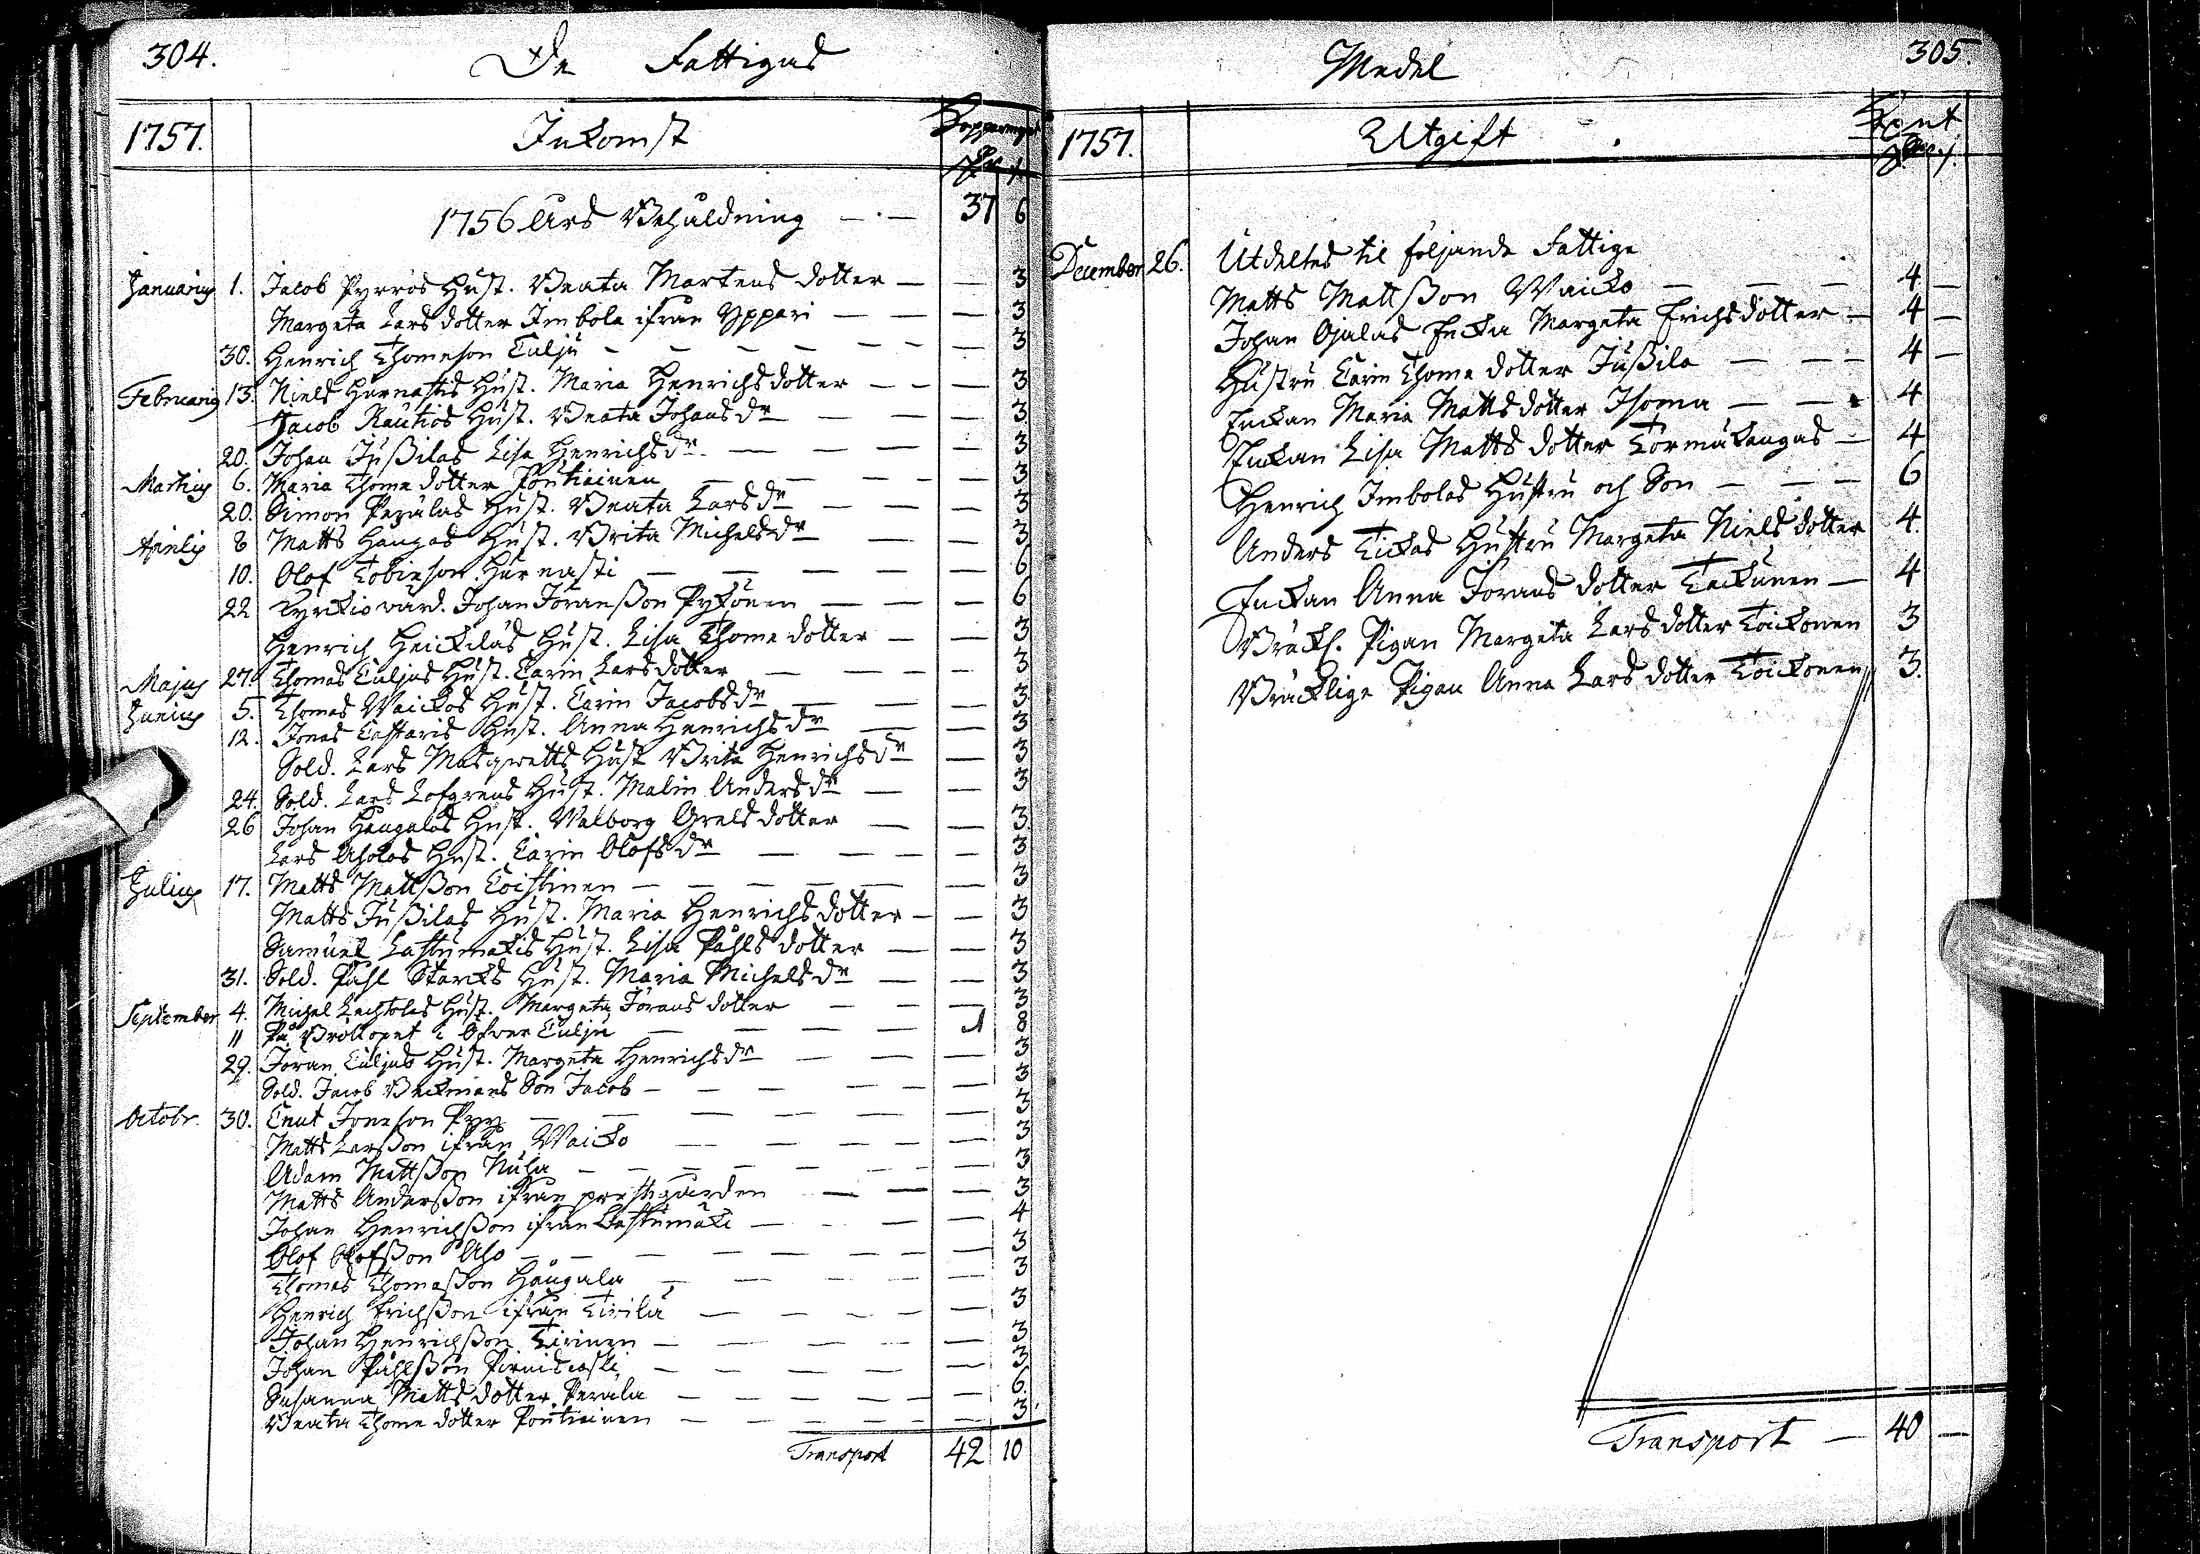 304.
De Fattigas
1757.
Inkomst
Kopparmynt
1756 Års Behåldning — · — 37 6
Januarius 1. Jacob Pyrrös Hust. Beata Mårtens dotter — — 3
Margeta Lars dotter Imbola ifrån Yppäri — — — 3
30. Henrich Thomeson Tulju — — — — — — — 3
Februarius 13. Niels Hurnastis Hust. Maria Henrichsdotter — — — 3
Jacob Rautios Hust. Beata Johansdr — — — 3
20. Johan Jußilas Lisa Henrichsdr. — — — — 3
Martius 6. Maria Thome dotter Poutiainen — — — — 3
20. Simon Peräläs Hust. Beata Larsdr — — — 3
Aprilis 8 Matts Haugas Hust. Brita Michelsdr — — 3
10. Olof Tobieson Hurnasti — — — — — 6
22 Kyrckiovärd. Johan Jöranßon Pykönen — — — 6
Henrich Heickiläs Hust. Lisa Thome dotter — — 3
Majus 27. Thomas Tuljus Hust. Carin Larsdotter — — — — 3
Junius 5. Thomas Waickos Hust. Carin Jacobsdr — — — 3
12. Jonas Castaris Hust. Anna Henrichsdr — — 3
Sold. Lars Hust Brita Henrichsdr — 3
24. Sold. Lars Löfgrens Hust. Malin Andersdr — — 3
26 Johan Haugalas Hust. Walborg Grels dotter — — 3
Lars Aholas Hust. Carin Olofsdr — — — — 3
Julius 17. Matts Mattßon Toistinen — — — — — — 3
Matts Jußilas Hust. Maria Henrichsdotter — — 3
Samuel Lastumäkis Hust. Lisa Påhls dotter — — 3
31. Sold. Påhl Starcks Hust. Maria Michelsdr — — 3
September 4. Michel Lechtolas Hust. Margeta Jörans dotter — — — 3
11 På Bröllopet i Öfver Tulju — — — — 1 8
29. Jöran Tuljus Hust. Margeta Henrichsdr — — — 3
Sold. Jacob Beckmans Son Jacob — — — — — 3
Octobr. 30. Cnut Joneson Pyy — — — — — — 3
Matts Larßon ifrån Waicko — — — — — 3
Adam Mattßon Nuha — — — — — — — 3
Matts Anderßon ifrån prestgården — — — 3
Johan Henrichßon ifrån Lastumäki — — — — 4
Olof Olofßon Aho — — — — — — — 3
Thomas Thomaßon Haugala — — — — — 3
Henrich Erichßon ifrån Tirilä — — — — 3
Johan Henrichßon Tirinen — — — — — 3
Johan Påhlßon — — — — — 3
Susanna Matts dotter Perälä — — — — — 6
Beata Thome dotter Poutiainen — — — — — 3
Transport 42 10
Medel
305.
1757.
Utgift
December 26. Utdeltes til följande Fattige
Matts Mattßon Waicko — — — 4 —
Johan Ojalas Encka Margeta Erichsdotter — 4 —
Hustru Carin Thome dotter Jußila — — — 4 —
Enckan Maria Mattsdotter Isoma — — 4
Enckan Lisa Matts dotter Törmäkangas — 4
Henrich Imbolas Hustru och Son — — — 6
Anders Tickas Hustru Margeta Niels dotter 4.
Enckan Anna Jörans dotter Teckunen — 4
Bräckl. Pigan Margeta Lars dotter Toickonen 3
Bräcklige Pigan Anna Lars dotter Toickonen 3.
Transport — 40 —